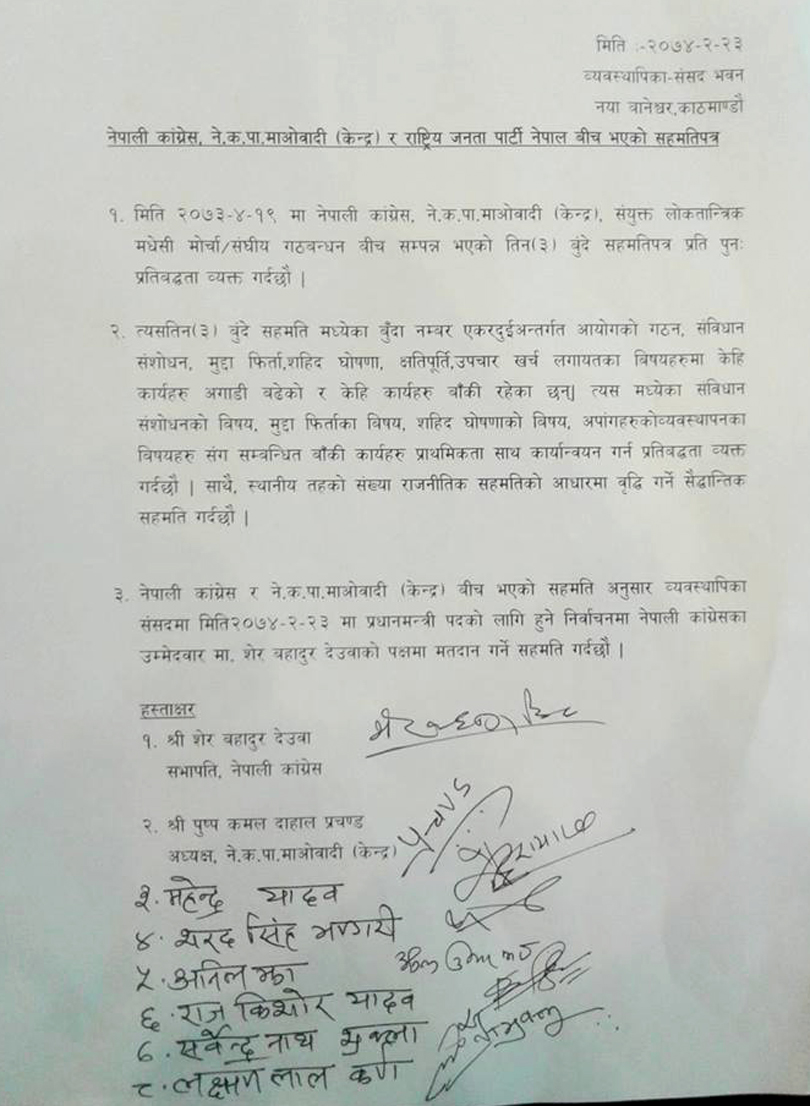 मिति :-२०७४-२-२३
व्यवस्थापिका-संसद भवन
नया वानेश्वर,काठमाण्डौ
नेपाली कांग्रेस, ने.क.पा.माओवादी (केन्द्र) र राष्ट्रिय जनता पार्टी नेपाल बीच भएको सहमतिपत्र
१. मिति २०७३-४-१९ मा नेपाली कांग्रेस, ने.क.पा.माओवादी (केन्द्र), संयुक्त लोकतान्त्रिक
मधेसी मोर्चा/संघीय गठबन्धन बीच सम्पन्न भएको तिन(३) बुंदे सहमतिपत्र प्रति पुनः
प्रतिबद्धता व्यक्त गर्दछौ |
२. त्यसतिन(३) बुंदे सहमति मध्येका बुँदा नम्बर एकरदुईअन्तर्गत आयोगको गठन, संविधान
संशोधन, मुद्दा फिर्ता,शहिद घोषणा, क्षतिपूर्ति,उपचार खर्च लगायतका बिषयहरुमा केहि
कार्यहरु अगाडी बढेको र केहि कार्यहरु बाँकी रहेका छन्| त्यस मध्येका संविधान
संशोधनको विषय, मुद्दा फिर्ताका विषय, शहिद घोषणाको विषय, अपांगहरुकोव्यवस्थापनका
विषयहरु संग सम्बन्धित बाँकी कार्यहरु प्राथमिकता साथ कार्यान्वयन गर्न प्रतिबद्धता व्यक्त
गर्दछौ | साथै, स्थानीय तहको संख्या राजनीतिक सहमतिको आधारमा वृद्धि गर्ने सैद्धान्तिक
सहमति गर्दछौ |
३. नेपाली कांग्रेस र ने.क.पा.माओवादी (केन्द्र) बीच भएको सहमति अनुसार व्यवस्थापिका
संसदमा मिति२०७४-२-२३ मा प्रधानमन्त्री पदको लागि हुने निर्वाचनमा नेपाली कांग्रेसका
उम्मेदवार मा. शेर बहादुर देउवाको पक्षमा मतदान गर्ने सहमति गर्दछौ |
हस्ताक्षर
१. श्री शेर बहादुर देउवा
सभापति, नेपाली कांग्रेस
२. श्री पुष्प कमल दाहाल प्रचण्ड
अध्यक्ष, ने.क.पा.माओवादी (केन्द्र)
३. महेन्द्र यादव
४. शरद सिंह भण्डारी
५. अनिल झा
६. राज किशोर यादव
७. सर्वेन्द्र नाथ शुक्ला
८. लक्ष्मण लाल कर्ण